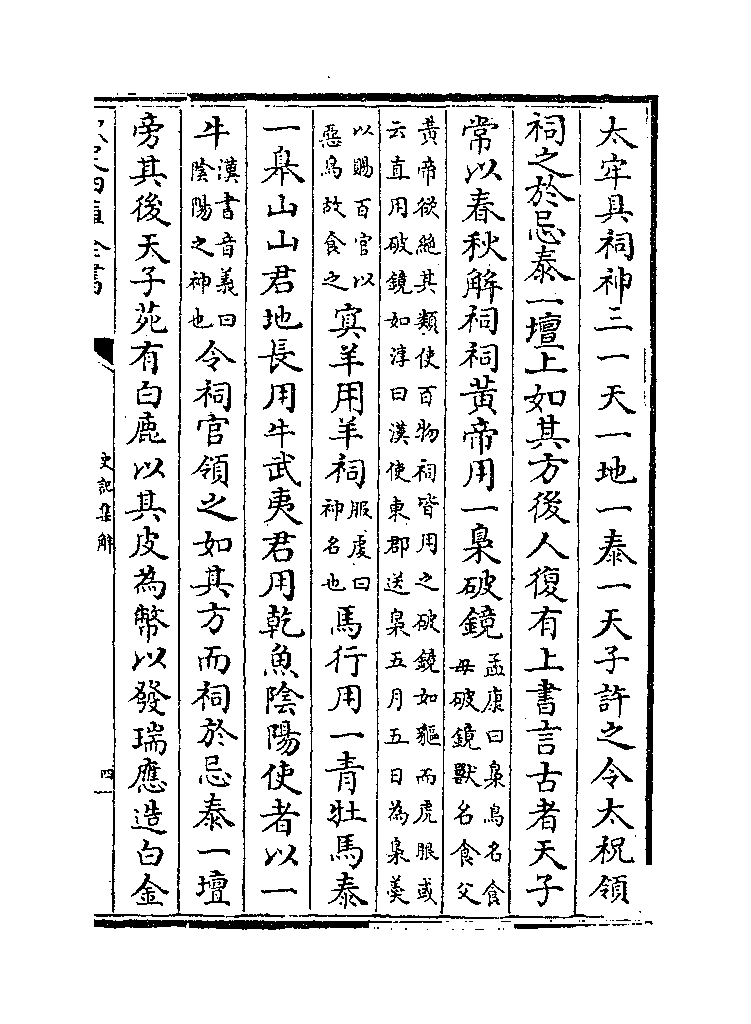 太牢具祠神三一天一地一泰一天子許之令太祝領
祠之於忌泰一壇上如其方後人復有上書言古者天子
常以春秋解祠祠黃帝用一梟破鏡孟康曰梟鳥名食
母破鏡獸名食父
黃帝欲絶其類使百物祠皆用之破鏡如貙而虎眼或
云直用破鏡如淳曰漢使東郡送梟五月五日為梟羹
以賜百官以
惡鳥故食之㝠羊用羊祠服虔曰
神名也馬行用一青牡馬泰
一臯山山君地長用牛武夷君用乾魚陰陽使者以一
牛漢書音義曰
陰陽之神也令祠官領之如其方而祠於忌泰一壇
旁其後天子苑有白鹿以其皮為幣以發瑞應造白金
史記集解